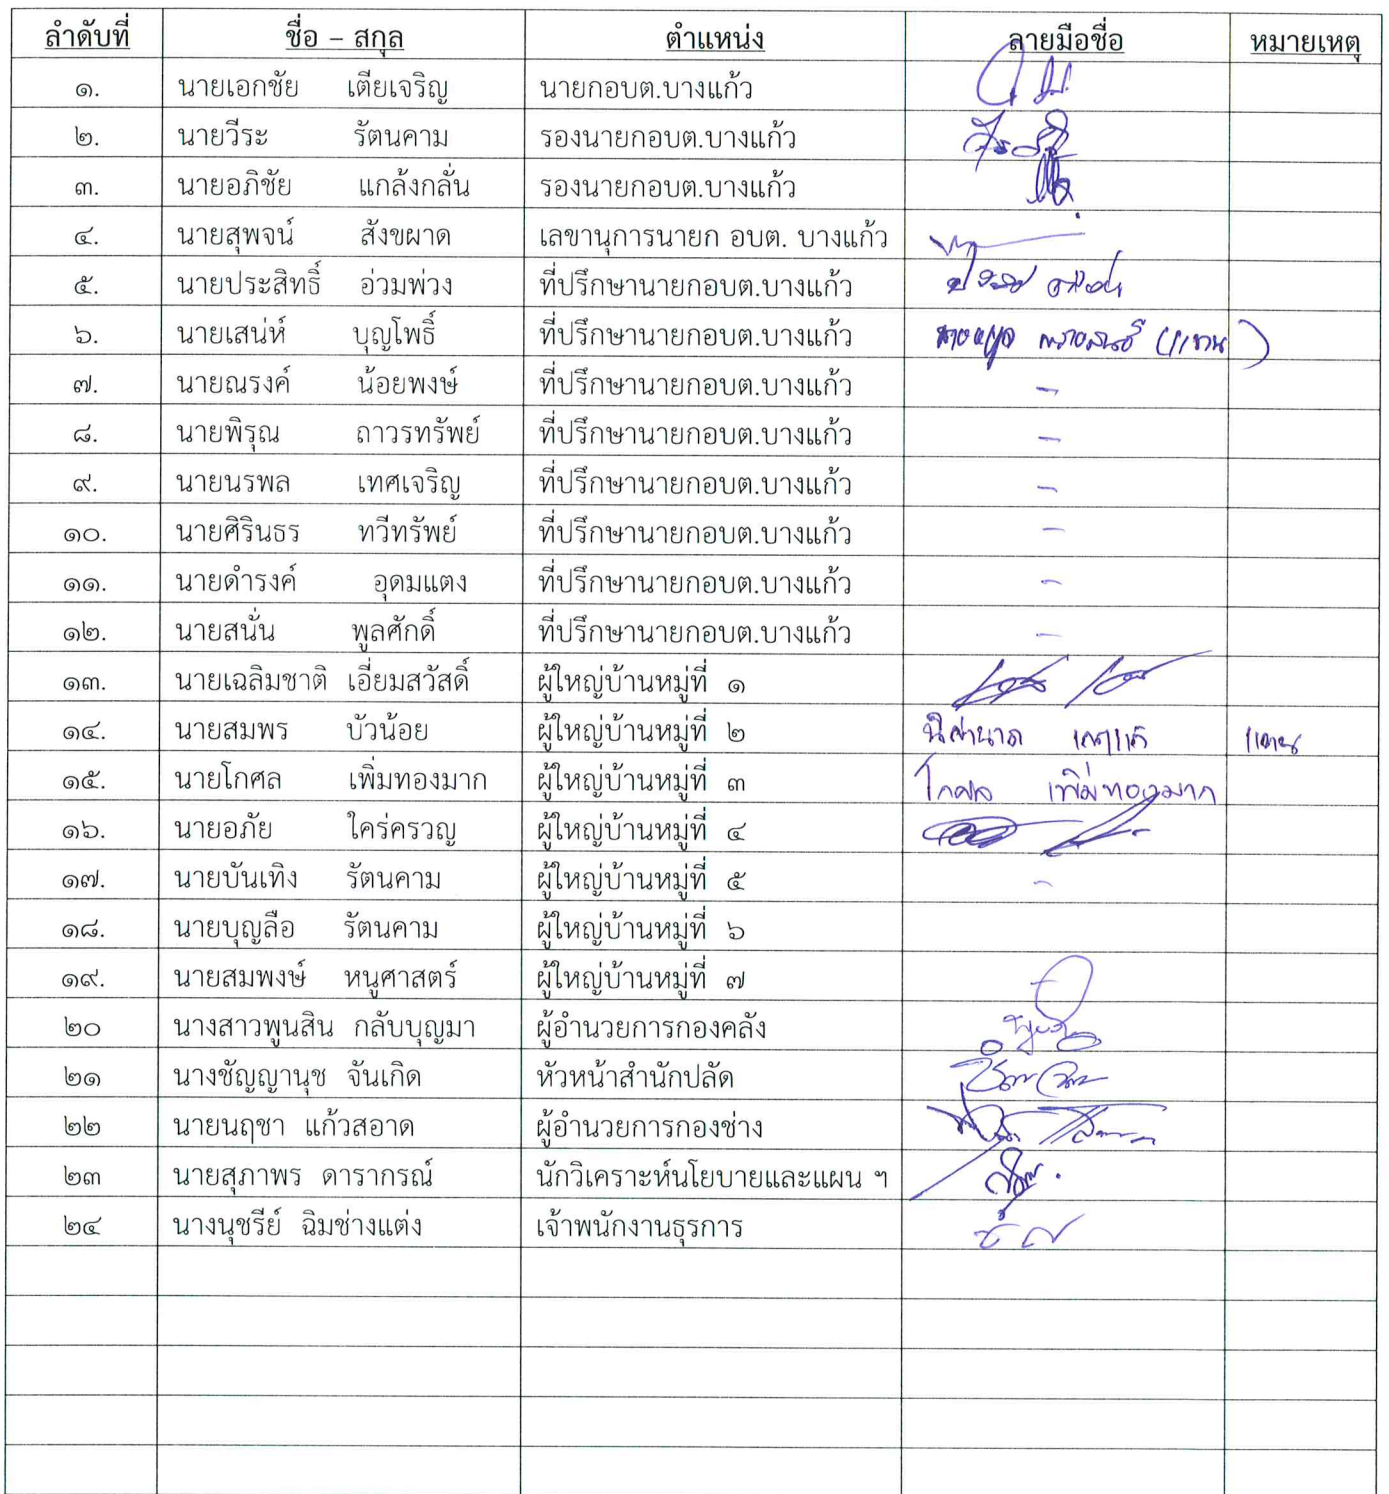 ลำดับที่ ชื่อ – สกุล ตำแหน่ง ลายมือชื่อ หมายเหตุ
๑. นายเอกชัย เตียเจริญ นายกอบต.บางแก้ว
๒. นายวีระ รัตนคาม รองนายกอบต.บางแก้ว
๓. นายอภิชัย แกล้งกลั่น รองนายกอบต.บางแก้ว
๔. นายสุพจน์ สังขผาด เลขานุการนายก อบต. บางแก้ว
๕. นายประสิทธิ์ อ่วมพ่วง ที่ปรึกษานายกอบต.บางแก้ว
๖. นายเสน่ห์ บุญโพธิ์ ที่ปรึกษานายกอบต.บางแก้ว (แทน)
๗. นายณรงค์ น้อยพงษ์ ที่ปรึกษานายกอบต.บางแก้ว -
๘. นายพิรุณ ถาวรทรัพย์ ที่ปรึกษานายกอบต.บางแก้ว -
๙. นายนรพล เทศเจริญ ที่ปรึกษานายกอบต.บางแก้ว -
๑๐. นายศิรินธร ทวีทรัพย์ ที่ปรึกษานายกอบต.บางแก้ว -
๑๑. นายดำรงค์ อุดมแตง ที่ปรึกษานายกอบต.บางแก้ว -
๑๒. นายสนั่น พูลศักดิ์ ที่ปรึกษานายกอบต.บางแก้ว -
๑๓. นายเฉลิมชาติ เอี่ยมสวัสดิ์ ผู้ใหญ่บ้านหมู่ที่ ๑
๑๔. นายสมพร บัวน้อย ผู้ใหญ่บ้านหมู่ที่ ๒ แทน
๑๕. นายโกศล เพิ่มทองมาก ผู้ใหญ่บ้านหมู่ที่ ๓ โกศล เพิ่มทองมาก
๑๖. นายอภัย ใคร่ครวญ ผู้ใหญ่บ้านหมู่ที่ ๔
๑๗. นายบันเทิง รัตนคาม ผู้ใหญ่บ้านหมู่ที่ ๕ -
๑๘. นายบุญลือ รัตนคาม ผู้ใหญ่บ้านหมู่ที่ ๖
๑๙. นายสมพงษ์ หนูศาสตร์ ผู้ใหญ่บ้านหมู่ที่ ๗
๒๐ นางสาวพูนสิน กลับบุญมา ผู้อำนวยการกองคลัง
๒๑ นางชัญญานุช จันเกิด หัวหน้าสำนักปลัด
๒๒ นายนฤชา แก้วสอาด ผู้อำนวยการกองช่าง
๒๓ นายสุภาพร ดารากรณ์ นักวิเคราะห์นโยบายและแผน ฯ
๒๔ นางนุชรีย์ ฉิมช่างแต่ง เจ้าพนักงานธุรการ